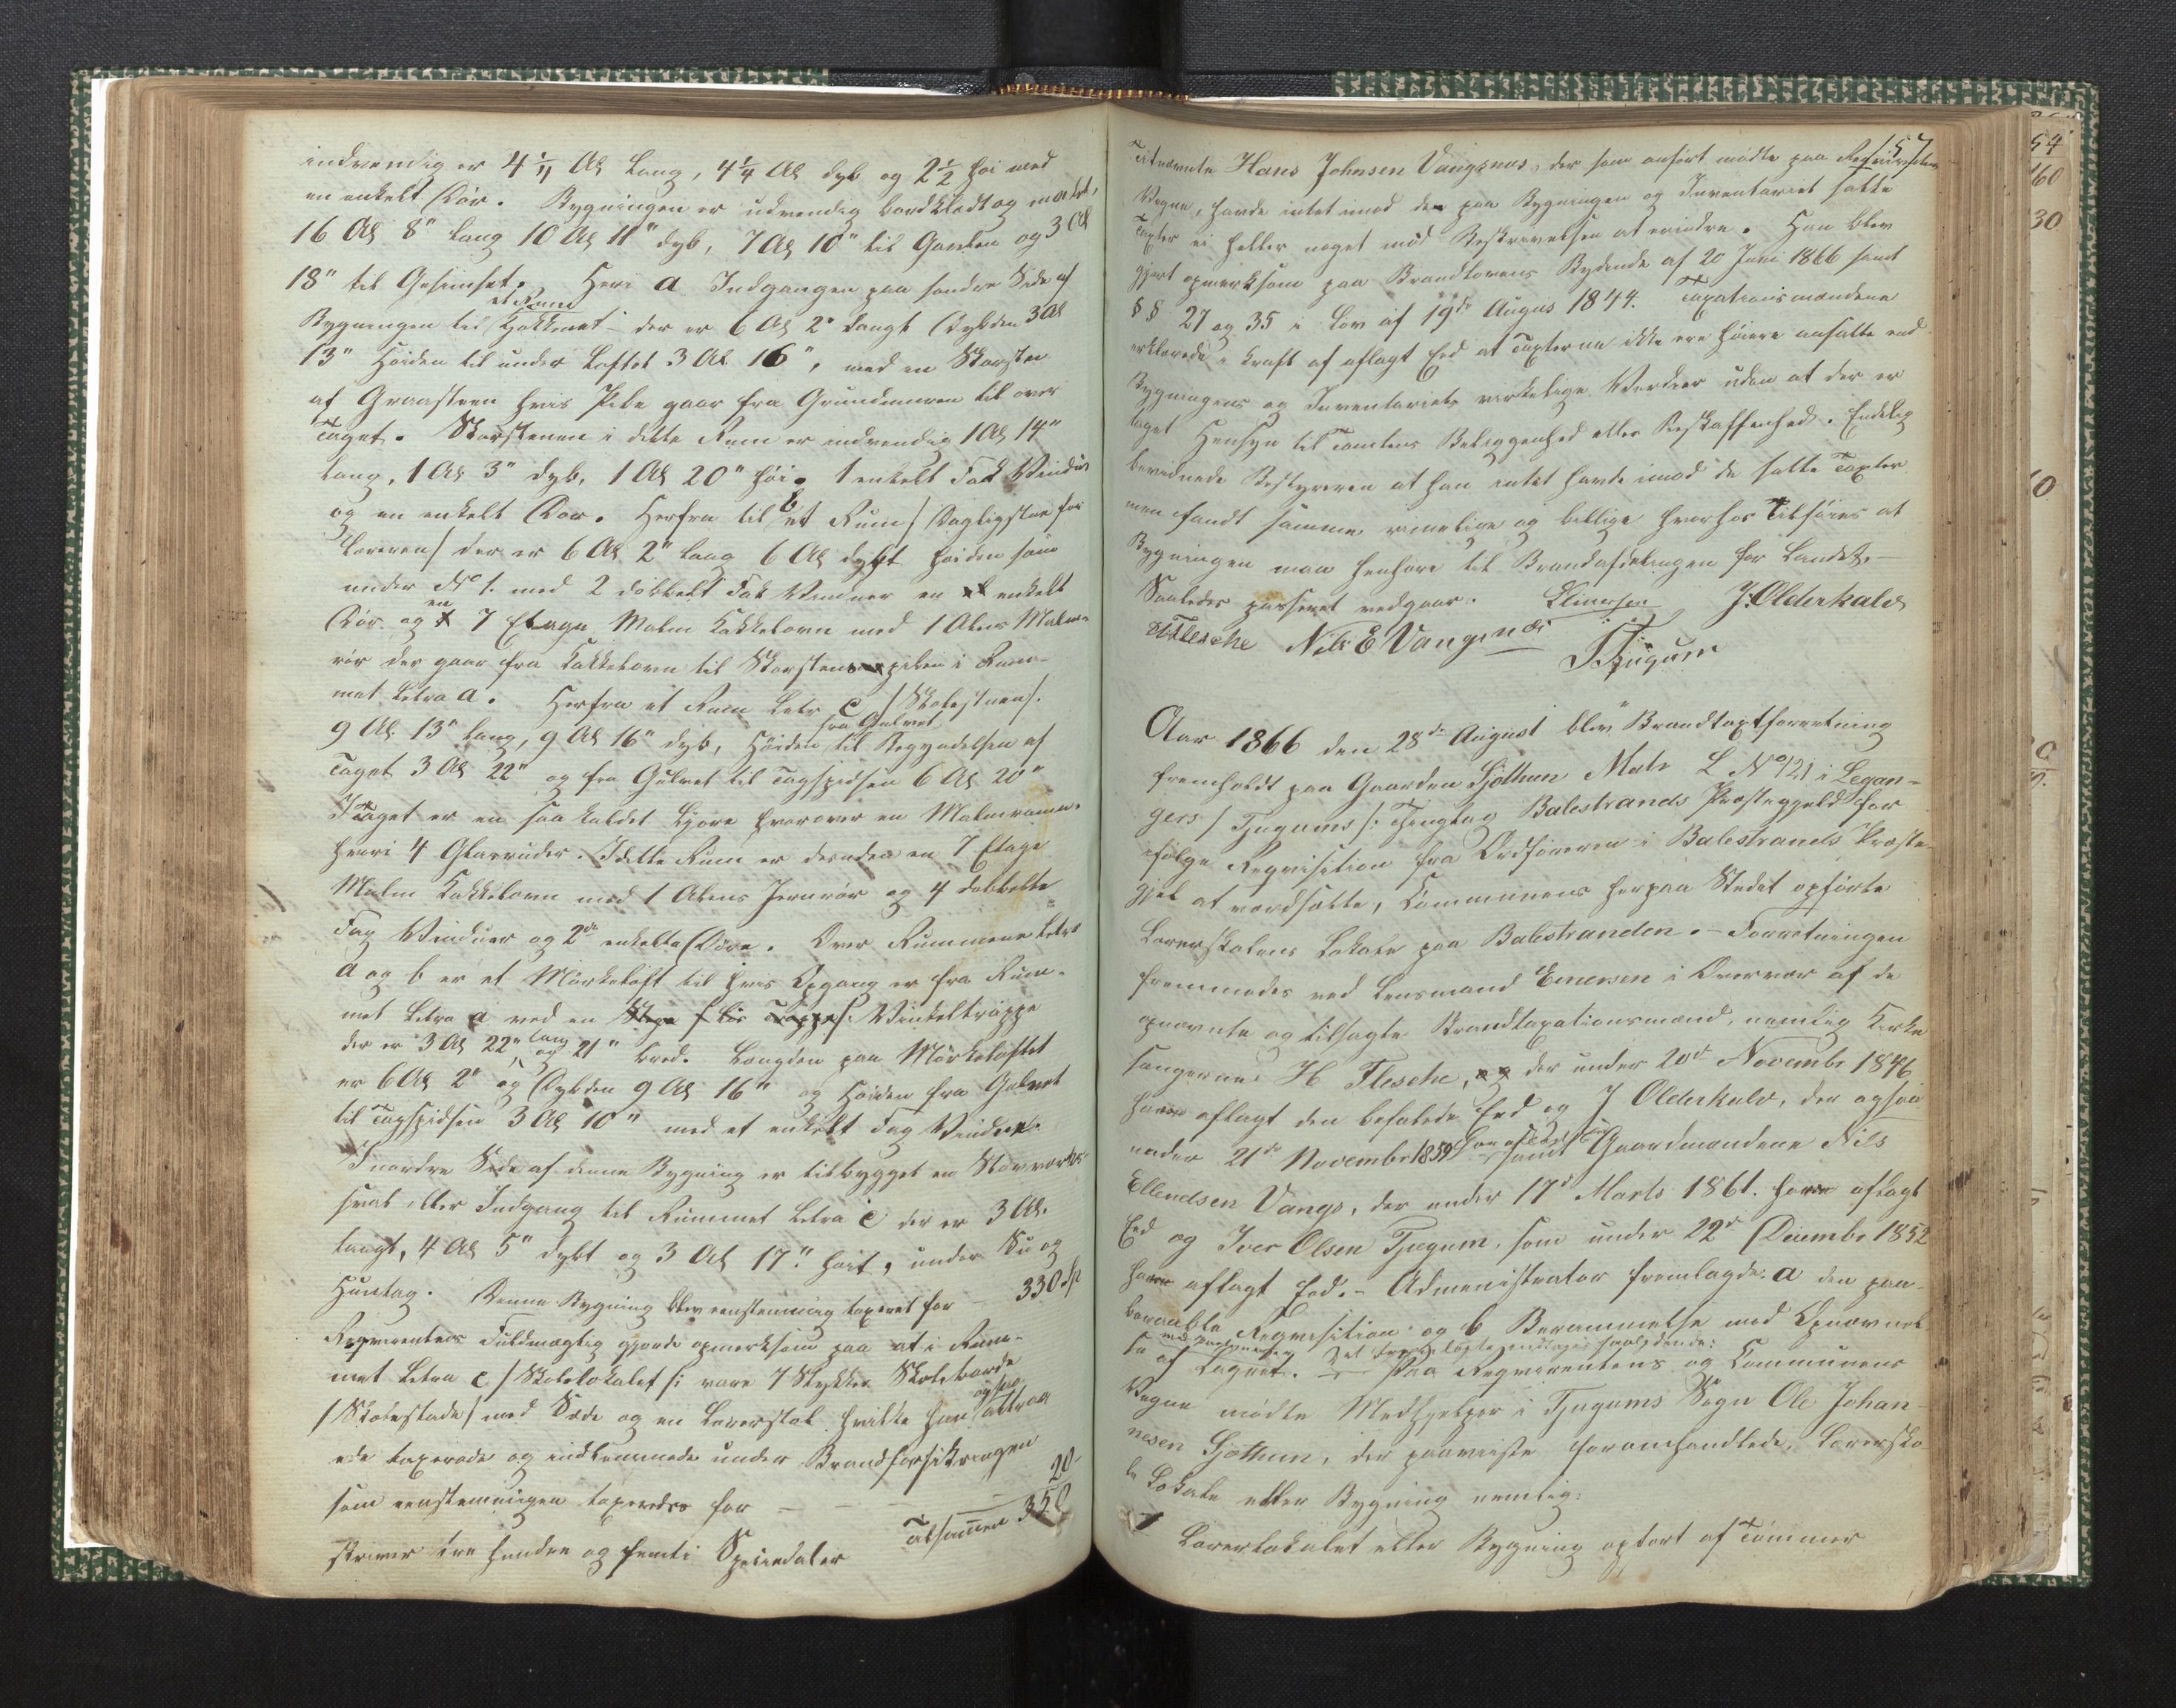 indvendig er 4 1/4 Al lang, 4 1/4 Al dyb og 2 1/2 høi med
en enkelt Dør. Bygningen er udvendig bordklædt og malet,
16 Al 8" lang 10 Al 11" dyb, 7 Al 10" til og 3 Al
18" til Gesimset. Heri a Indgangen paa søndre Side af
et Rum
Bygningen til Kjøkkenet - der er 6 Al 2" langt Dybden 3 Al
13" Høiden til under Loftet 3 Al 16", med en Skorsten
af Graasteen hvis Pibe gaar fra Grundmuren til over
Taget. Skorstenen i dette Rum er indvendig 1 Al 14"
lang, 1 Al 3" dyb, 1 Al 20" høi. 1 enkelt Fak Vindue
og en enkelt Dør. Herfra til b et Rum / Dagligstue for
Læreren / der er 6 Al 2" lang 6 Al dybt Høiden som
under No 1. med 2 dobbelt Fak Vinduer en enkelt
en
Dør og 7 Etages Malm Kakkelovn med 1 Alens Malm-
rør der gaar fra Kakkelovn til Skorstenspiben i Rum-
met Letra a. Herfra et Rum Letr c / Skolestuen /.
fra Gulvet
9 Al 13" lang, 9 Al 16" dyb, Høiden til Begyndelsen af
Taget 3 Al 22" og fra Gulvet til Tagspidsen 6 Al 20"
I Taget er en saa kaldet Ljore hvorover en Malmramme
hvori 4 Glasruder. I dette Rum er desuden en 7 Etage
Malm Kakkelovn med 1 Alens Jernrør og 4 dobbelte
Fag Vinduer og 2de enkelte Døre. Over Rummene Letra
a og b er et Mørkeloft til hvis Opgang er fra Rum-
met Letra a ved en Vinkeltrappe
lang
der er 3 Al 22" og 21" bred. Længden paa Mørkeloftet
er 6 Al 2" og Dybden 9 Al 16" og Høiden fra Gulvet
til Tagspidsen 3 Al 10" med et enkelt Fag Vindue.
I nordre Side af denne Bygning er tilbygget en Stavværks-
sval eller Indgang til Rummet Letra c der er 3 Al.
langt, 4 Al 5" dybt og 3 Al 17" høit, under Su og
Huntag. Denne Bygning blev eenstemmig taxeret for - 330 Sp
Reqvirentens Fuldmægtig gjorde opmærksom paa at i Rum-
met Letra c / Skolelokalet / vare 7 Stykker Skoleborde
ogsaa
/ Skolestade / med Sæde og en Lærerstol hvilke han attraa
ede taxerede og indlemmede under Brandforsikringen
som eenstemmigen taxeredes for - - - 20
Tilsammen 350
skriver tre hundre og femti Speciedaler
157
Hans Johnsen Vangsnæs, der som anført mødte paa
Vegne, havde intet imod de paa Bygningen og Inventariet satte
Taxter ei heller noget mod Beskrivelsen at erindre. Han blev
gjort opmerksom paa Brandlovens Bydende af 20 Juni 1866 samt
§§ 27 og 35 i Lov af 19de Augus 1844. Taxationsmændene
erklærede i Kraft af aflagt Eed at Taxterne ikke ere høiere ansatte end
Bygningens og Inventariets virkelige Værdier uden at der er
taget Hensyn til Tomtens Beliggenhed eller Beskaffenhed. Endelig
bevidnede Bestyreren at han intet havde imod de satte Taxter
men fandt samme rimelige og billige hvorhos tilføies at
Bygningen maa henhøre til Brandafdelingen for Landet.-
Saaledes passeret vedgaar. J. Olderkale
HFlesche Nils E Vangsnæs
Tjugum
Aar 1866 den 28de August blev Brandtaxtforretning
fremholdt paa Gaarden Sjøthun Matr L No 121 i Legan-
gers / Tjugums / Thinglag Balestrands Præstegjeld for
ifølge Reqvisition fra Ordføreren i Balestrands Præste-
gjel at værdsætte, Kommunens herpaa Stedet opførte
Lærerskolens Lokale paa Balestranden. - Forretningen
fremmedes ved Lensmand Emersen i Overvær af de
opnævnte og tilsagte Brandtaxationsmænd, nemlig Kirke
sangerne H Flesche, der under 20de November 1846
have aflagt den befalede Eed og J Olderkale, der ogsaa
under 21de Novembr 1859 har aflagt Eed samt Gaardmændene Nils
Ellendsen Vangs, der under 17de Marts 1861. have aflagt
Eed og Iver Olsen Tjugum, som under 22de Decembr 1852
have aflagt Eed. - Administrator fremlagde: a den paa-
beraabte Reqvisition og b Berammelse med Opnævnel
se af Lagret. Paa Reqvirentens og Communens
Vegne mødte Medhjelper i Tjugums Sogn Ole Johan-
nesen Sjøthun, der paaviiste foromhandlede Lærersko
le Lokale eller Bygning nemlig:
1
Lærerlokalet eller Bygning opført af Tømmer
54
160
30